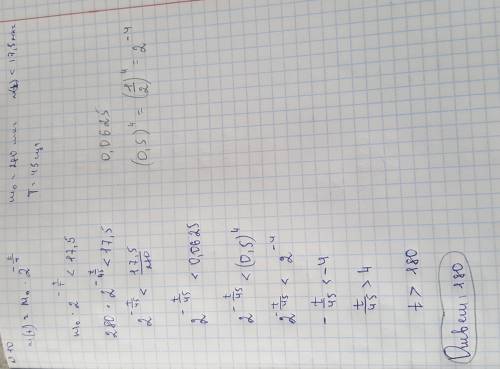 N 10
m(t) = m₀ · 2^(-t/T)   m₀ = 280 мг   m(t) < 17,5 мг
T = 45 суч
m₀ · 2^(-t/T) < 17,5
280 · 2^(-t/45) < 17,5   0,0625
2^(-t/45) < 17,5/280   (0,5)^4 = (1/2)^4 = 2^(-4)
2^(-t/45) < 0,0625
2^(-t/45) < (0,5)^4
2^(-t/45) < 2^(-4)
-t/45 < -4
t/45 > 4
t > 180
Ответ: 180